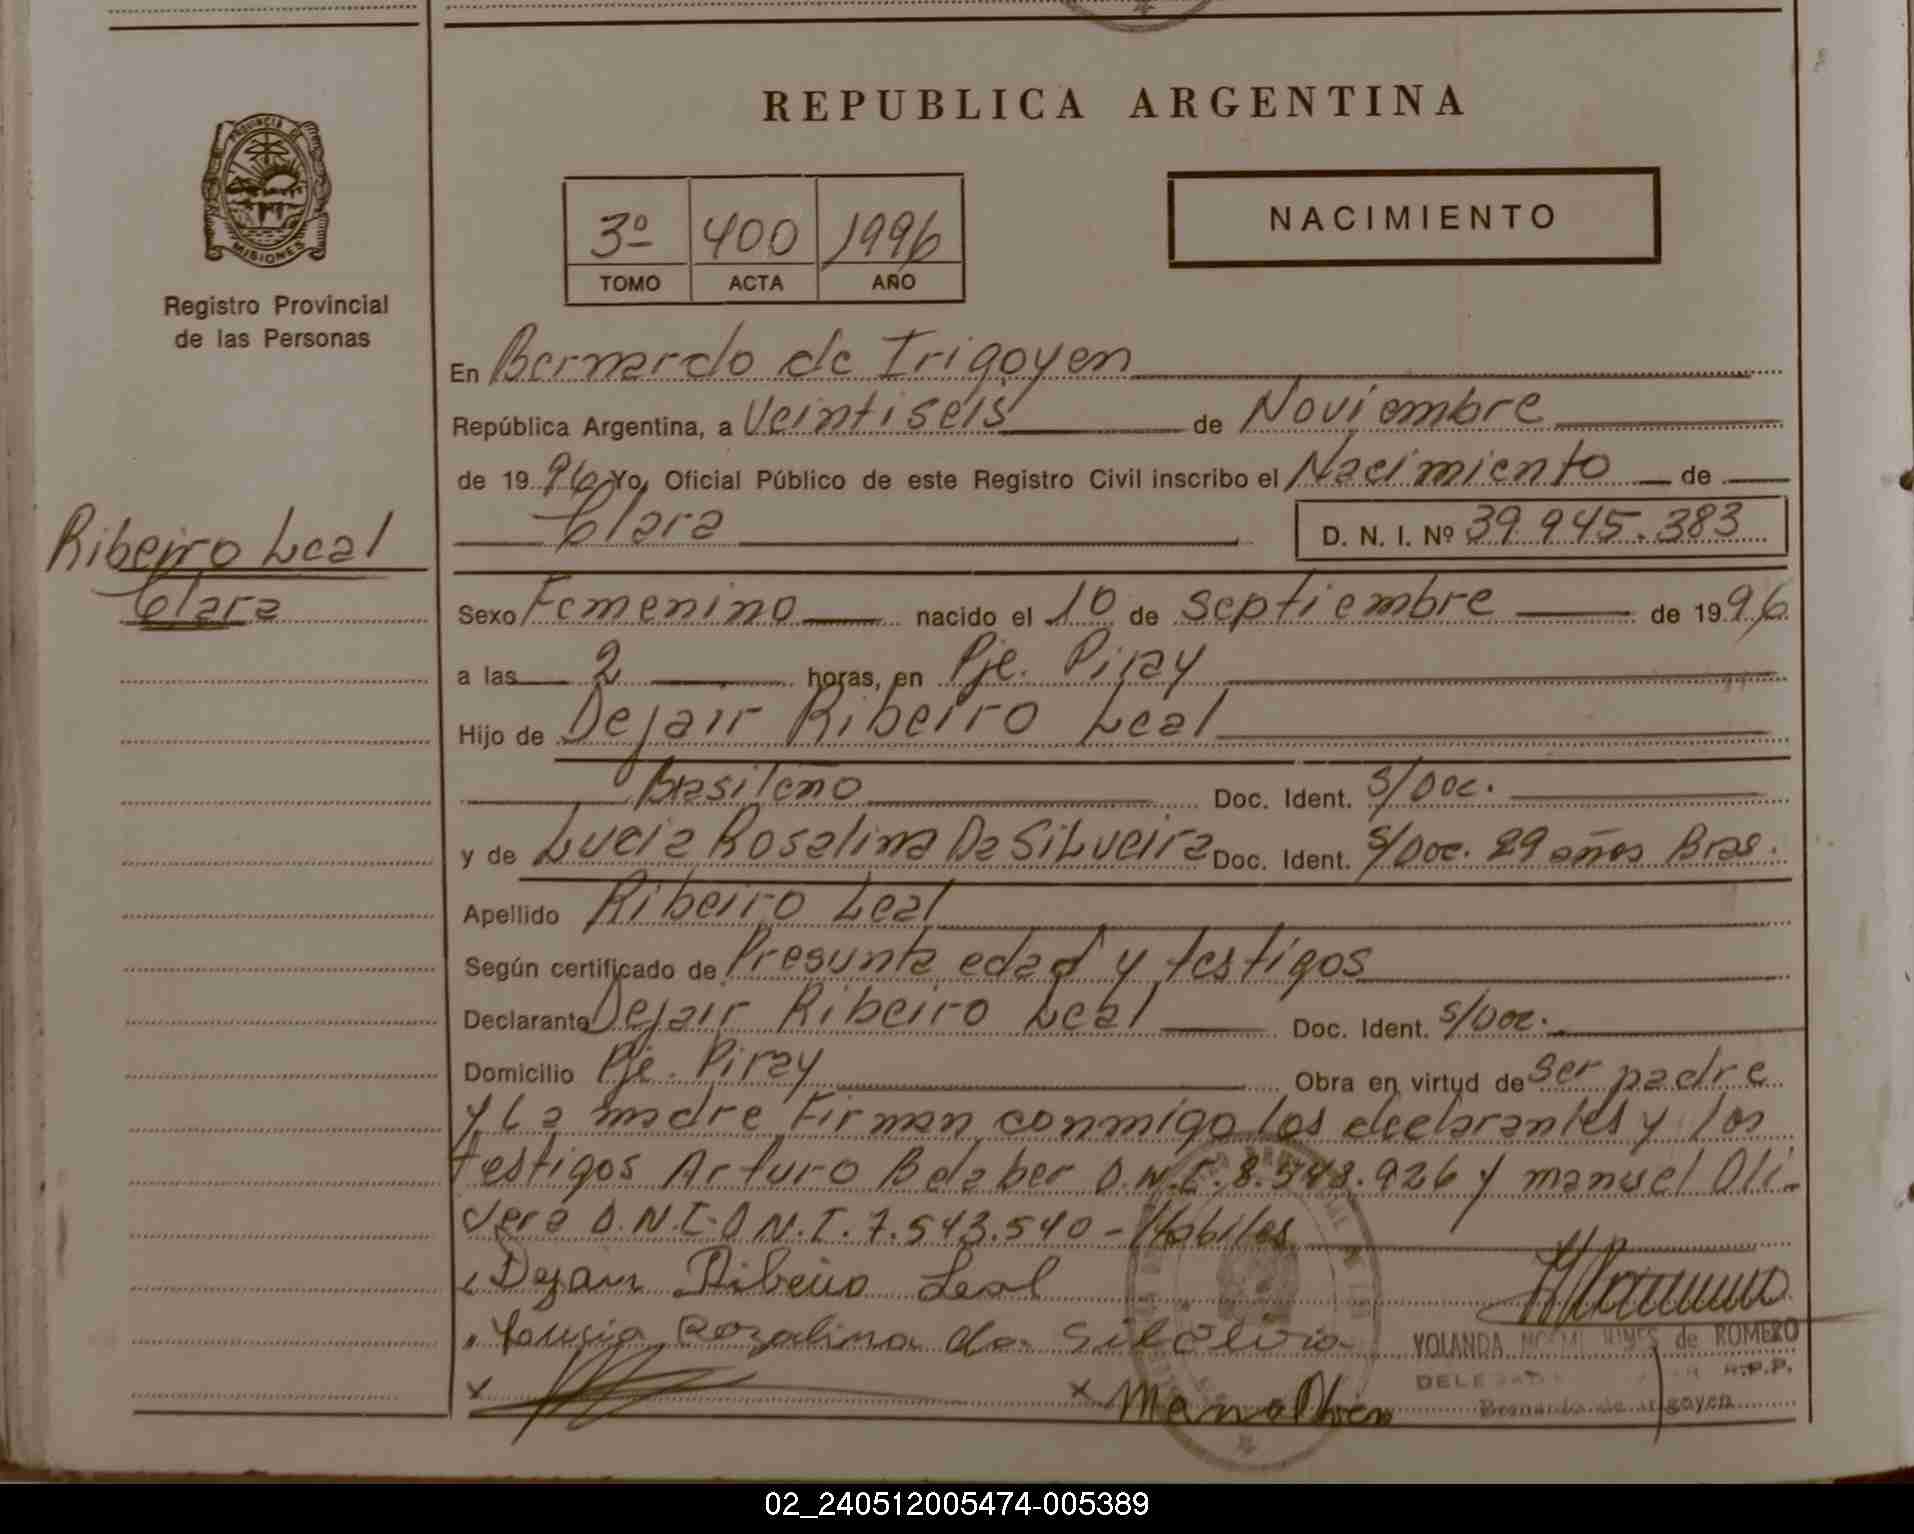 REPUBLICA ARGENTINA
PROVINCIA DE MISIONES
Registro Provincial
de las Personas
3º 400 1996
TOMO ACTA AÑO
NACIMIENTO
En Bernardo de Irigoyen
República Argentina, a Veintiseis de Noviembre
de 1996 Yo, Oficial Público de este Registro Civil inscribo el Nacimiento de
Clara D. N. I. Nº 39.945.383
Ribeiro Leal
Clara
Sexo Femenino nacido el 10 de Septiembre de 1996
a las 2 horas, en Pje. Piray
Hijo de Dejair Ribeiro Leal
Brasileño Doc. Ident. S/Doc.
y de Lucia Rosalina Da SiLveira Doc. Ident. S/Doc. 29 años Bras.
Apellido Ribeiro Leal
Según certificado de Presunta edad y testigos
Declarante Dejair Ribeiro Leal Doc. Ident. S/Doc.
Domicilio Pje. Piray Obra en virtud de ser padre
y La madre Firman conmigo los declarantes y los
testigos Arturo D.N.I. 8.548.926 y manuel Oli-
vera D.N.I. D.N.I. 7.543.540 - Habiles
Dejair Ribeiro Leal
Rozalina da
YOLANDA de ROMERO
R.P.P.
Bernardo de Irigoyen
02_240512005474-005389